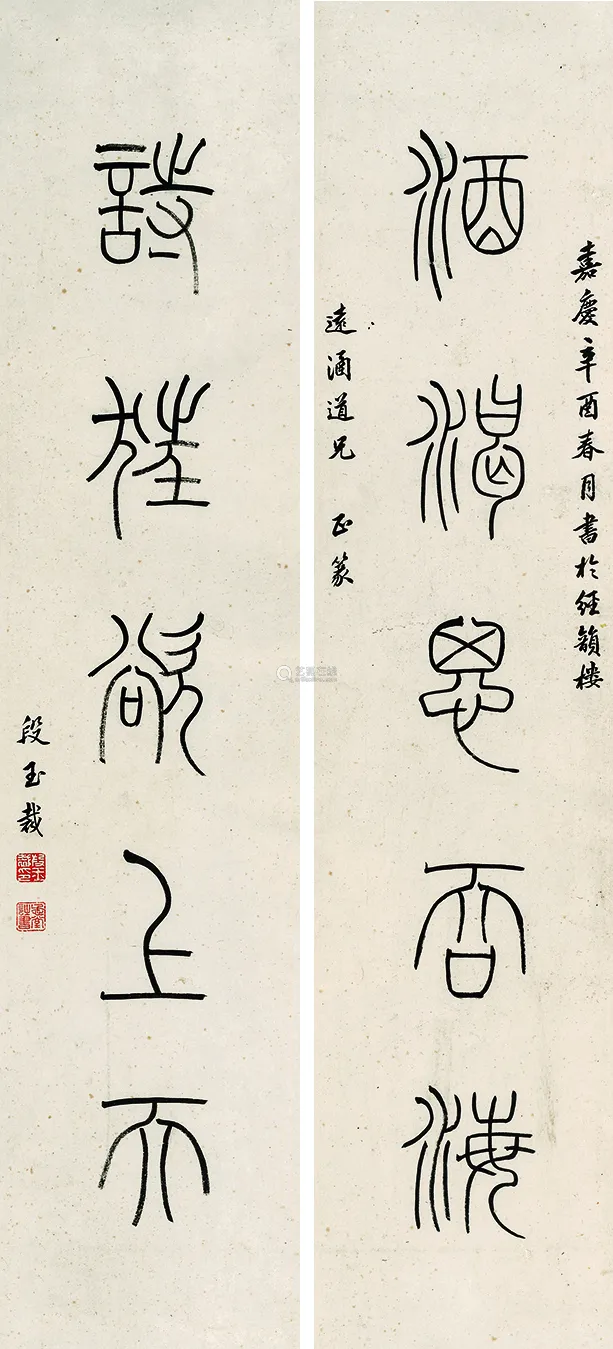 嘉慶辛酉春月書於經韻樓
酒渴思吞海
遠涵道兄 正篆
詩狂欲上天
段玉裁